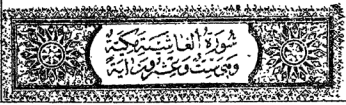 سورة الغاشية مكية
وهي ست وعشرون آية